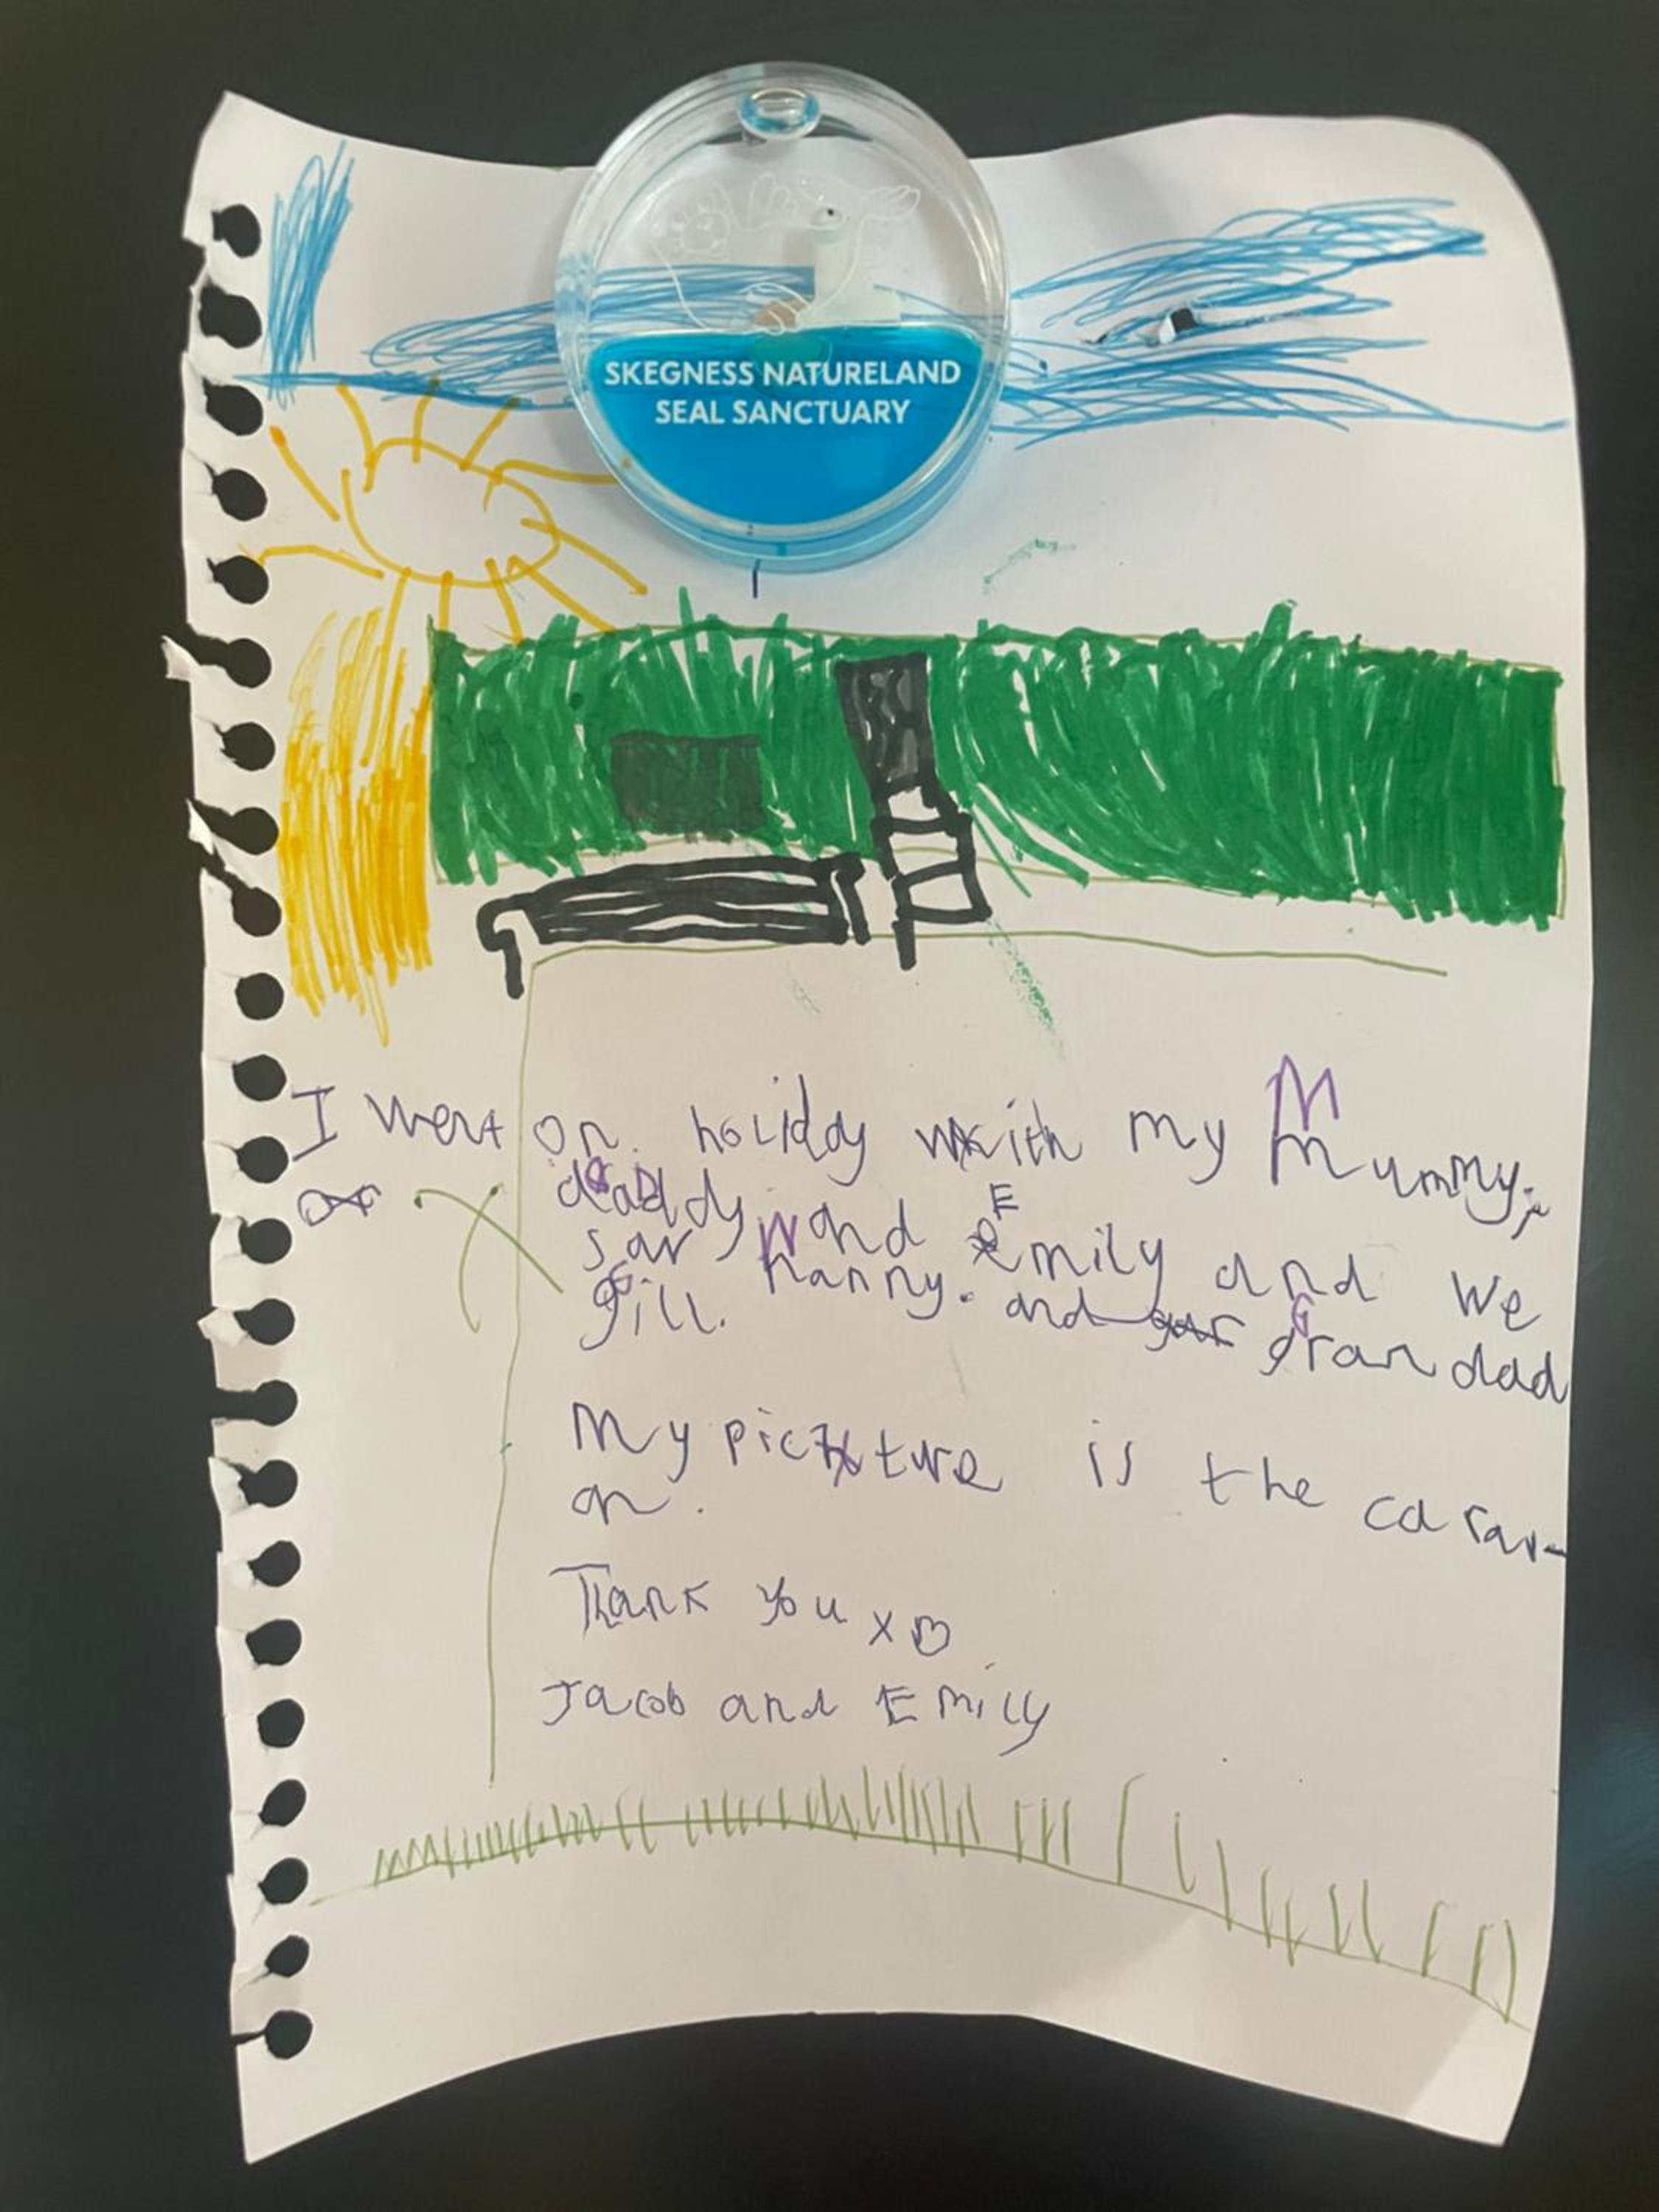 SKEGNESS NATURELAND
SEAL SANCTUARY
I went on holiday with my Mummy,
daddy and Emily and we
saw Nanny. and Grandad
Gill.
My picture is the carav-
an.
Thank you x♡
Jacob and Emily